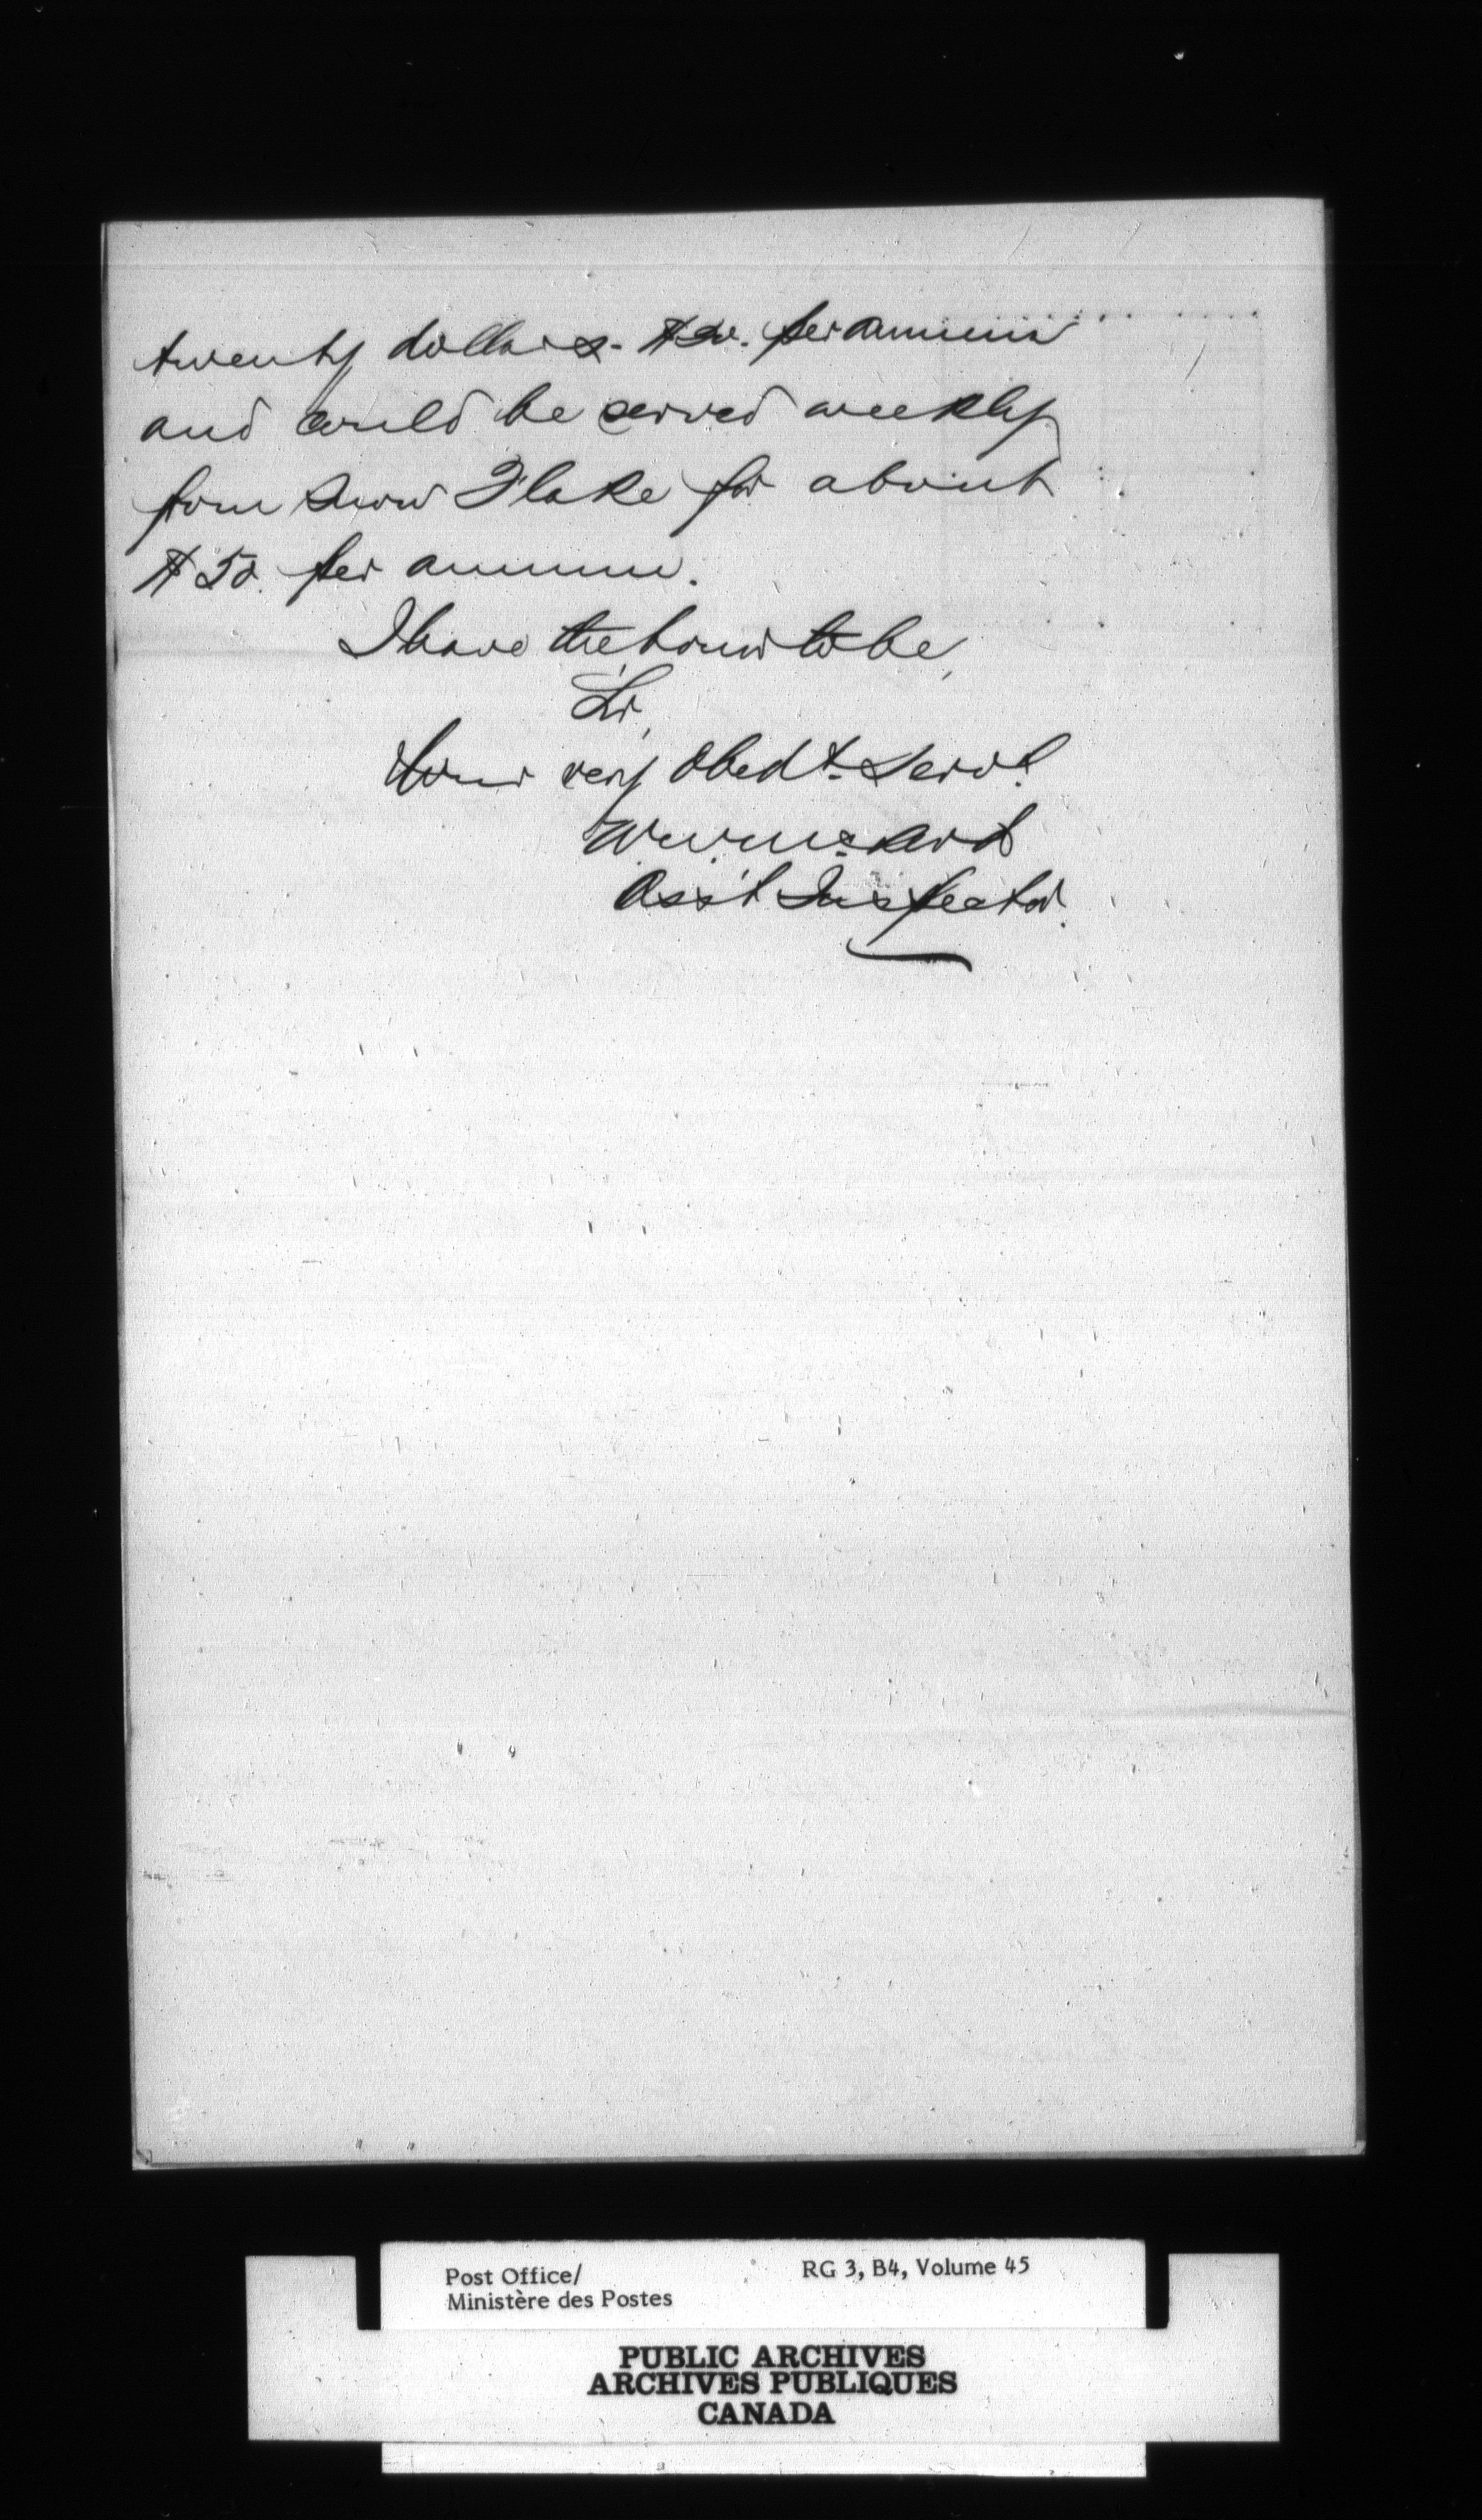 twenty dollars - $20. per annum
and could be served weekly
from Snow Flake for about
$50. per annum.
I have the honor to be,
Sir,
Your very Obedt. Servt.
Asst Inspector.
Post Office/
Ministère des Postes
RG 3, B4, Volume 45
PUBLIC ARCHIVES
ARCHIVES PUBLIQUES
CANADA